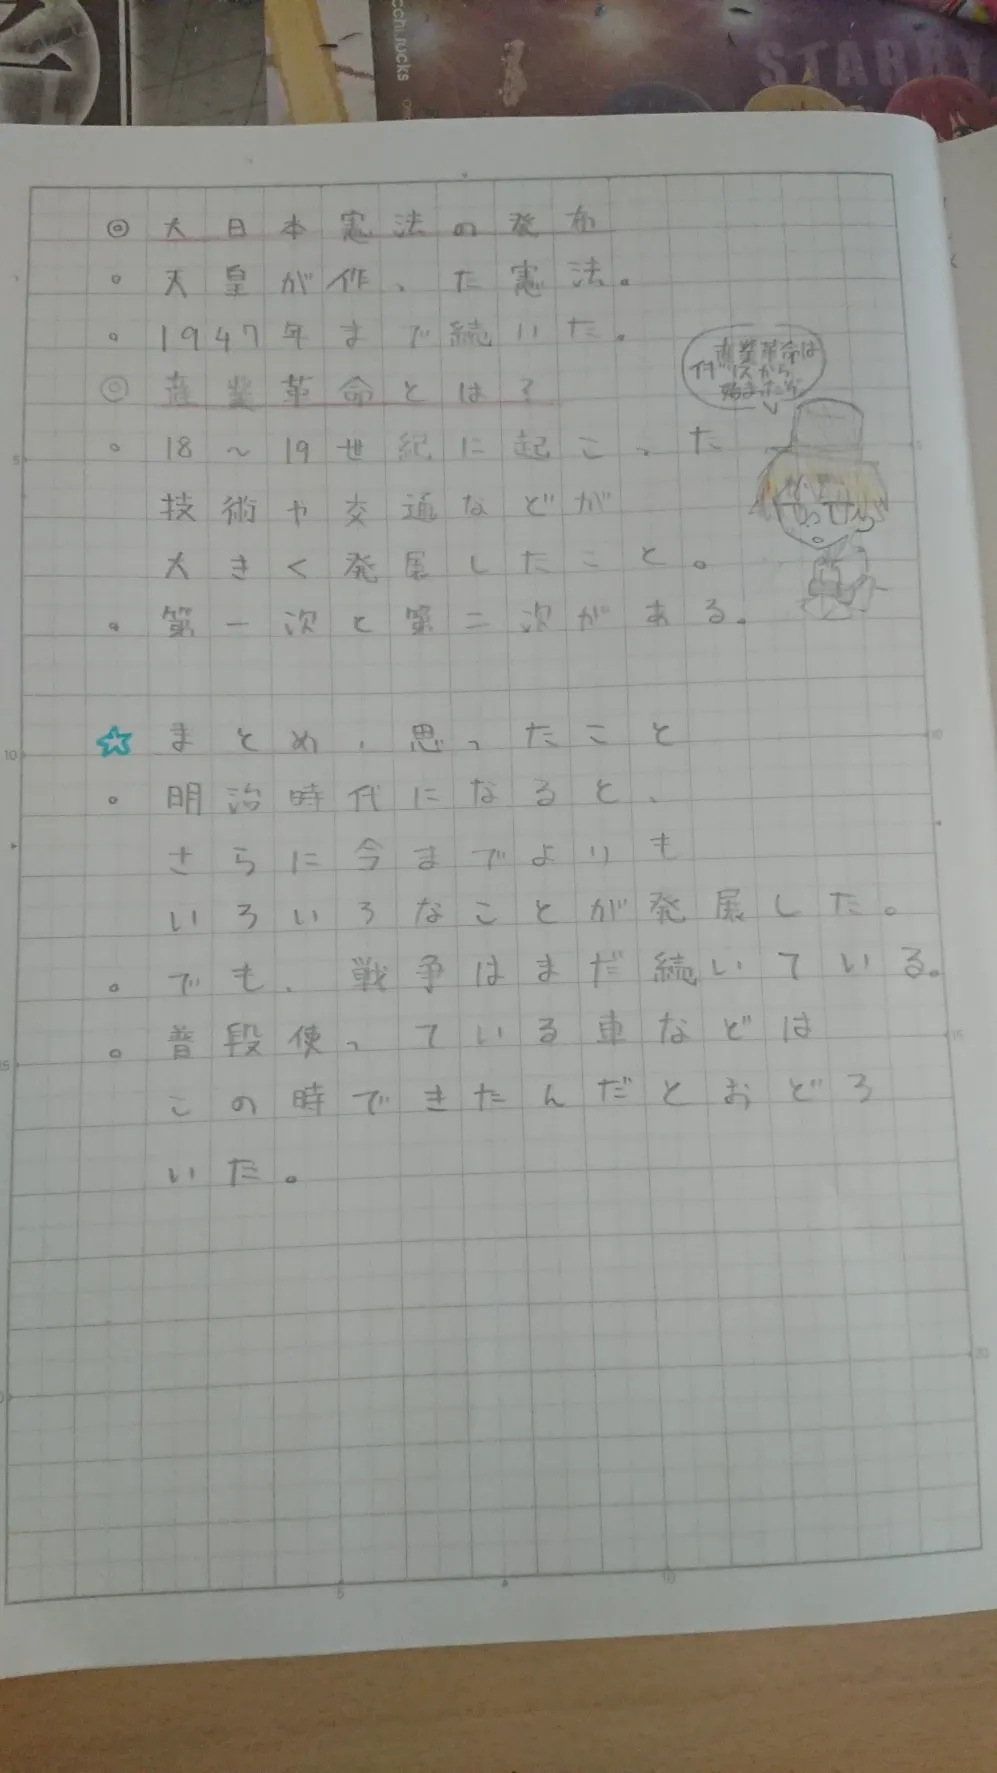 STARRY
◎大日本憲法の発布
。天皇が作った憲法。
。1947年まで続いた。
◎産業革命とは？
産業革命は
イギリスから
始まったぞ
。18～19世紀に起こった
技術や交通などが
大きく発展したこと。
。第一次と第二次がある。
☆まとめ、思ったこと
。明治時代になると、
さらに今までよりも
いろいろなことが発展した。
。でも、戦争はまだ続いている。
。普段使っている車などは
この時できたんだとおどろ
いた。
5
10
15
5
10
15
20
5
10